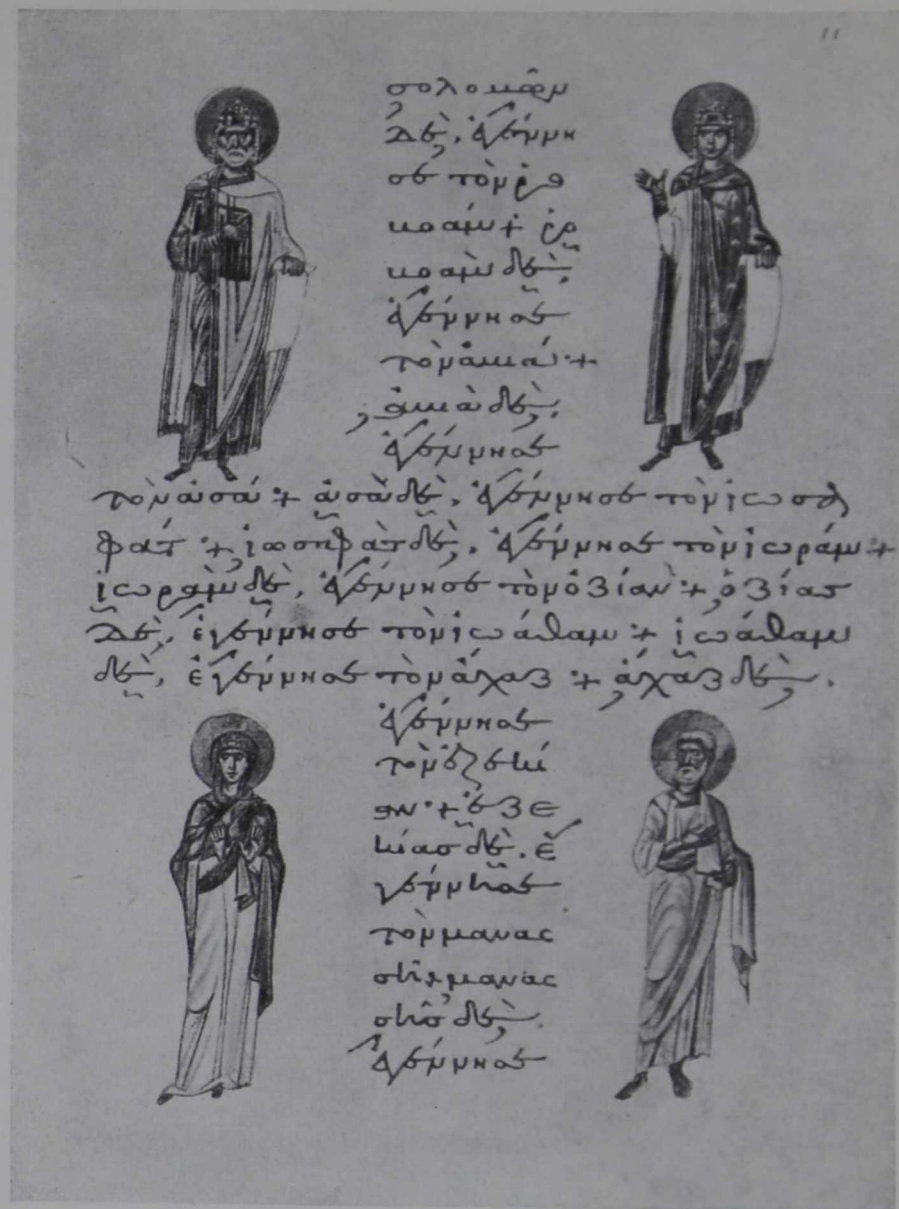 11
σολομῶν
δὲ, ἐγέννη
σε τὸν ῥο
βοάμ + ῥο
βοὰμ δὲ,
ἐγέννησε
τὸν ἀβιά +
ἀβιὰ δὲ,
ἐγέννησε
τὸν ἀσά + ἀσὰ δὲ, ἐγέννησε τὸν ἰωσα
φάτ + ἰωσαφὰτ δὲ, ἐγέννησε τὸν ἰωράμ +
ἰωρὰμ δὲ, ἐγέννησε τὸν ὀζίαν + ὀζίας
δὲ, ἐγέννησε τὸν ἰωάθαμ + ἰωάθαμ
δὲ, ἐγέννησε τὸν ἄχαζ + ἄχαζ δὲ,
ἐγέννησε
τὸν ἐζεκί
αν + ἐζε
κίας δὲ, ἐ
γέννησε
τὸν μανασ
σῆ + μανασ
σῆς δὲ,
ἐγέννησε